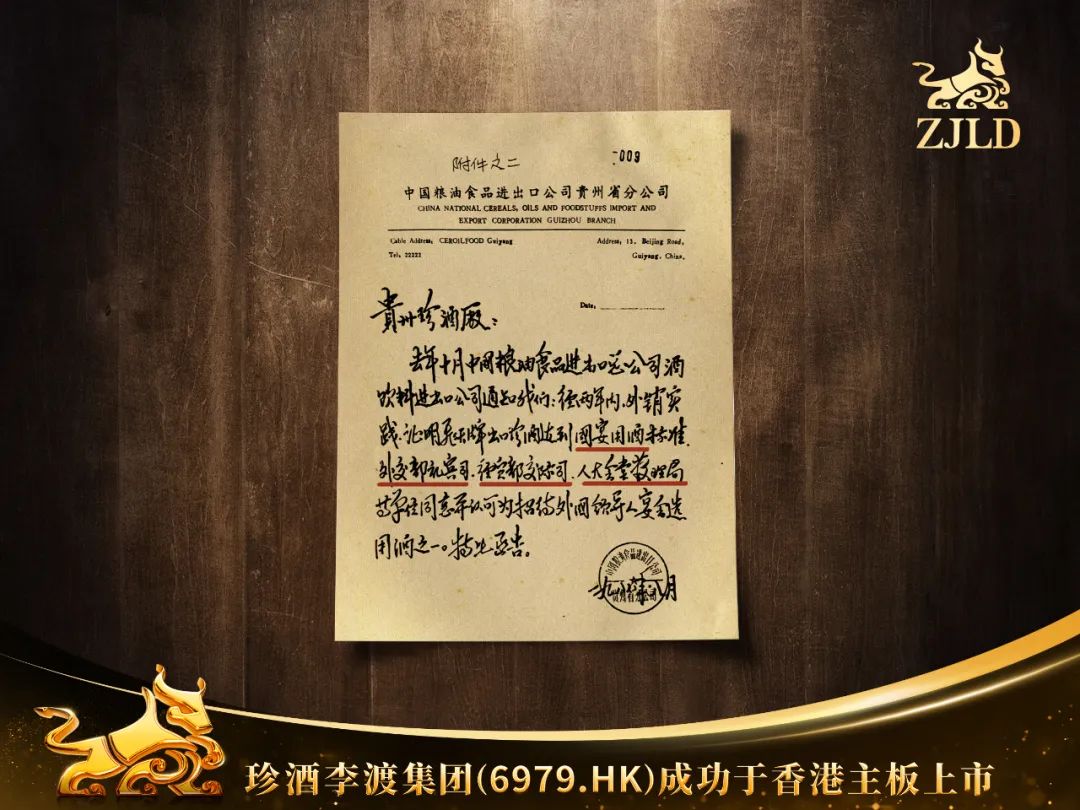 ZJLD
附件之二
009
中国粮油食品进出口公司貴州省分公司
CHINA NATIONAL CEREALS, OILS AND FOODSTUFFS IMPORT AND
EXPORT CORPORATION GUIZHOU BRANCH
Cable Address: CEROILFOOD Guiyang
Address: 13, Beijing Road,
Tel: 22222
Guiyang, China.
Date:
貴州珍酒厰:
去年十月中国粮油食品进出口总公司酒
饮料进出口公司通知我们:经两年内、外销实
践、证明飞天牌出口珍酒达到国宴用酒标准.
外交部礼宾司、经贸部交际司、人大会堂管理局
等单位同意并认可为招待外国领导人宴会选
用酒之一。特此函告。
中国粮油食品进出口公司
珍酒李渡集团(6979.HK)成功于香港主板上市